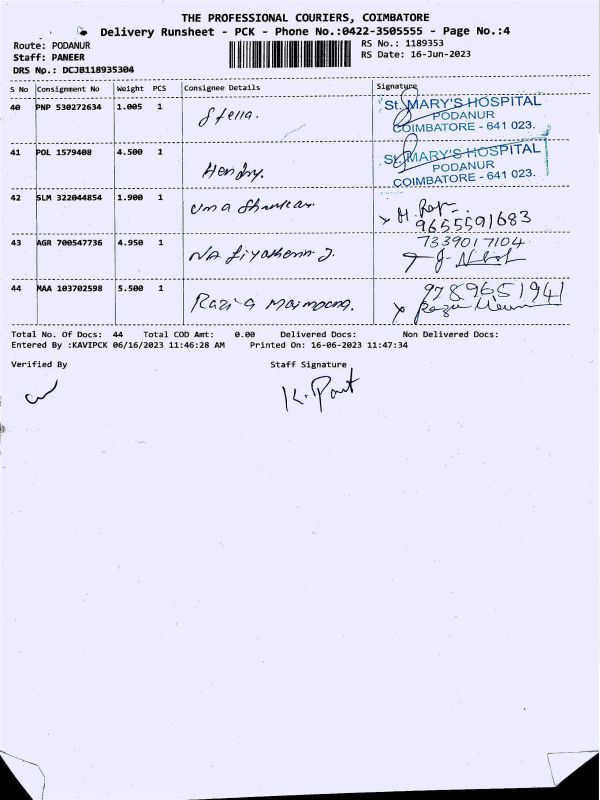 THE PROFESSIONAL COURIERS, COIMBATORE
Delivery Runsheet - PCK - Phone No.:0422-3505555 - Page No.:4
Route: PODANUR
RS No.: 1189353
Staff: PANEER
RS Date: 16-Jun-2023
DRS No.: DCJB118935304
S No Consignment No Weight PCS Consignee Details Signature
40 PNP 530272634 1.005 1 Stella.
St. MARY'S HOSPITAL
PODANUR
COIMBATORE - 641 023.
41 POL 1579408 4.500 1 Hendry.
St. MARY'S HOSPITAL
PODANUR
COIMBATORE - 641 023.
42 SLM 322044854 1.900 1 Uma Shankar
9655591683
43 AGR 700547736 4.950 1
7339017104
44 MAA 103702598 5.500 1 Razia Maimoona.
9789651941
Total No. Of Docs: 44 Total COD Amt: 0.00 Delivered Docs: Non Delivered Docs:
Entered By :KAVIPCK 06/16/2023 11:46:28 AM Printed On: 16-06-2023 11:47:34
Verified By Staff Signature